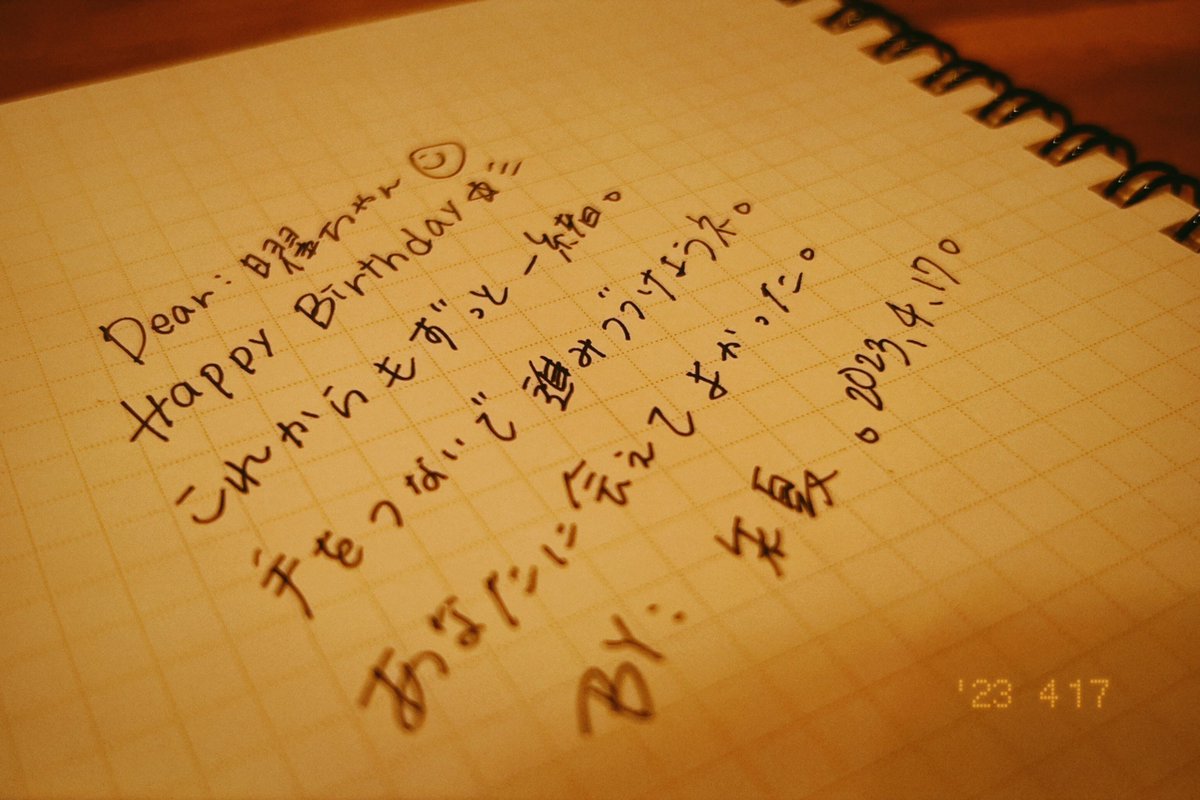 Dear: 曜ちゃん
Happy Birthday
これからもずっと一緒。
手をつないで進みつづけようね。
あなたに会えてよかった。
BY: 朱夏。2023.4.17。
'23 4 17